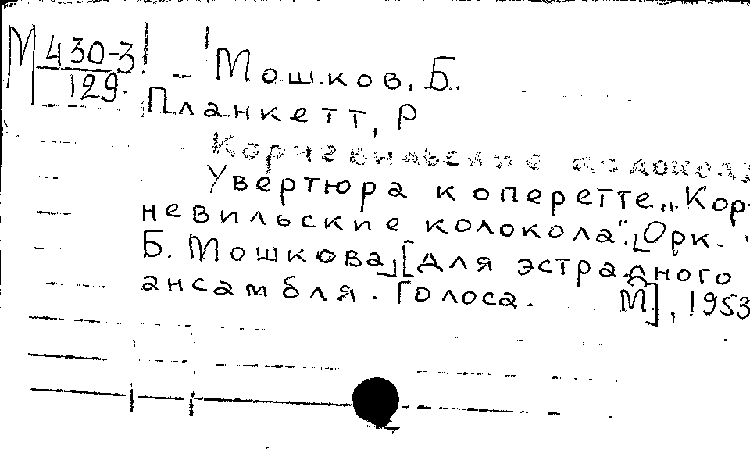 М 430-3
129.
Мошков, Б.
Планкетт, Р
Корневильские колокола
Увертюра к оперетте „Кор-
невильские колокола". [Орк.
Б. Мошкова] [для эстрадного
ансамбля. Голоса. М], 1953